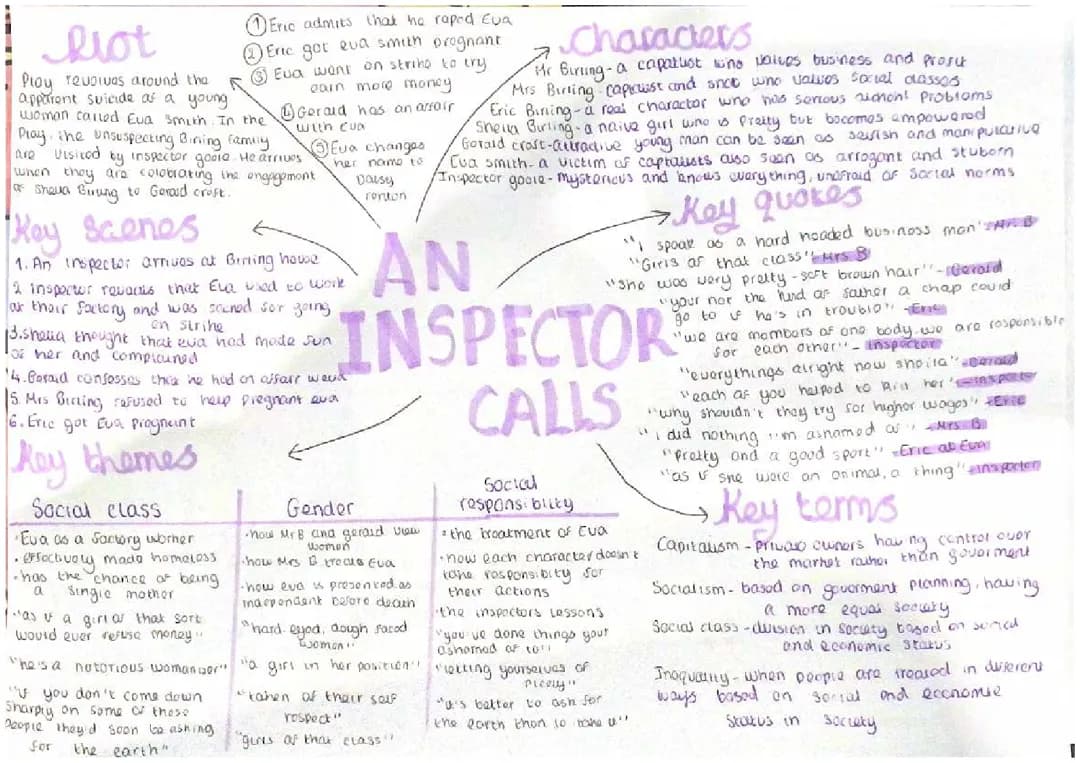 Plot
Play revolves around the
apparent suicide of a young
woman called Eva Smith. In the
Play, the unsuspecting Birling family
are visited by inspector goole. He arrives
when they are celebrating the engagement
of Sheila Birling to Gerald croft.
① Eric admits that he raped Eva
② Eric got eva smith pregnant
③ Eva went on strike to try
earn more money
④ Gerald has an affair
with Eva
⑤ Eva changes
her name to
Daisy
renton
Characters
Mr Birling - a capatlist who values business and profit
Mrs Birling - capitlist and snob who values social classes
Eric Birling - a real character who has serious problems
Sheila Birling - a naive girl who is pretty but becomes empowered
Gerald croft - attractive young man can be seen as selfish and manipulative
Eva smith - a victim of captalists also seen as arrogant and stuborn
Inspector goole - mysterious and knows everything, unafraid of social norms
Key scenes
1. An inspector arrives at Birling house
2 inspector reveals that Eva used to work
at their factory and was sacked for going
on strike
3. shelia thought that eva had made fun
of her and complained
4. Gerald confesses that he had an affair
5. Mrs Birling refused to help pregnant eva
6. Eric got Eva
AN
INSPECTOR
CALLS
Key quotes
"I speak as a hard headed business man" - Mr. B
"Girls of that class" - Mrs B
"she was very pretty - soft brown hair" - Gerald
"your not the kind of father a chap could
go to if he's in trouble" - Eric
"we are members of one body. we are responsible
for each other" - Inspector
"everythings alright now sheila" - Gerald
"each of you helped to kill her" - Inspector
"why shouldn't they try for higher wages" - Eric
"I did nothing i'm ashamed of" - Mrs B
"Pretty and a good sport" - Eric at Eva
"as if she were an animal, a thing" - inspector
Key themes
Social class
· Eva as a factory worker
· effectively made homeless
· has the chance of being
a single mother
"as if a girl of that sort
would ever refuse money"
"he's a notorious womanizer"
"if you don't come down
sharply on some of these
people they'd soon be asking
for the earth"
Gender
· how Mr B and gerald view
women
· how Mrs B treats Eva
· how eva is presented as
independent before death
"hard-eyed, dough faced
women"
"a girl in her position"
"taken of their self
respect"
"girls of that class"
Social
responsibility
· the treatment of Eva
· how each character doesn't
take responsibilty for
their actions
· the inspectors lessons
"you've done things your
ashamed of to"
"letting yourselves of
nicely"
"it's better to ask for
the earth than to take it"
Key terms
Capitalism - private owners having control over
the market rather than goverment
Socialism - based on goverment planning, having
a more equal society
Social class - division in society based on social
and economic status
Inequality - when people are treated in different
ways based on social and economic
status in society